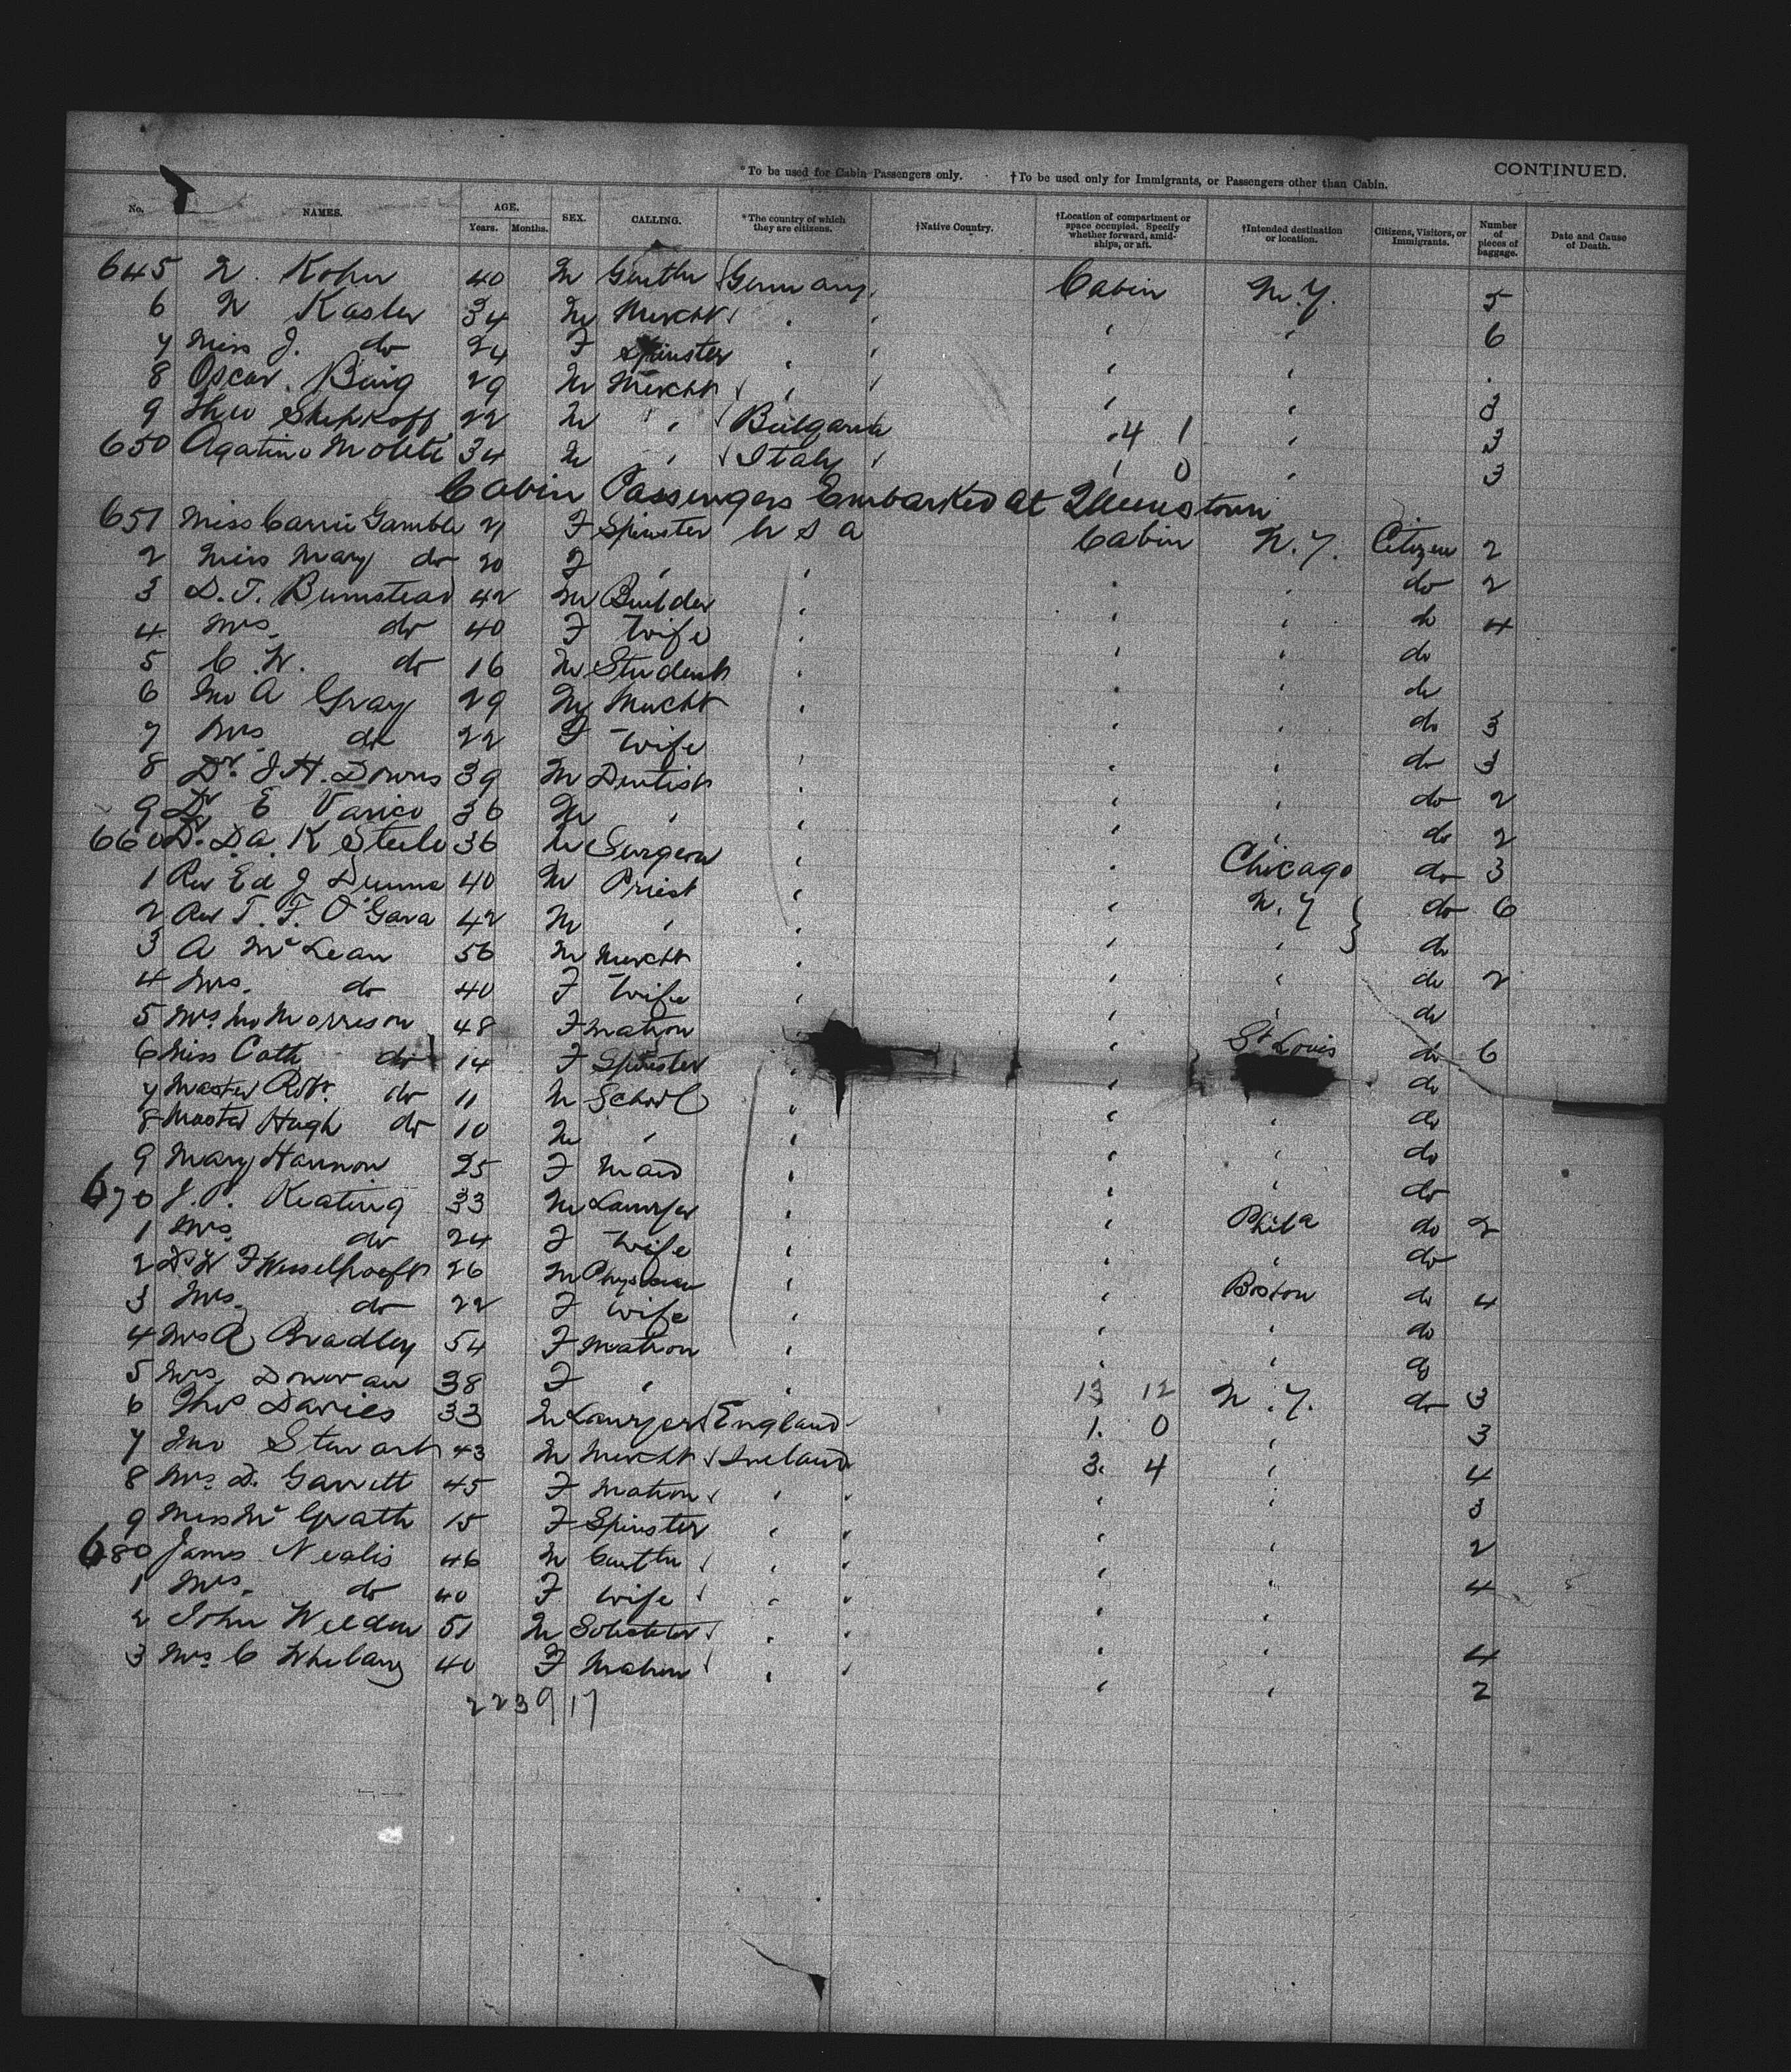 *To be used for Cabin Passengers only. †To be used only for Immigrants, or Passengers other than Cabin. CONTINUED.
No. NAMES. AGE. Years. Months. SEX. CALLING. *The country of which they are citizens. †Native Country. †Location of compartment or space occupied. Specify whether forward, amidships, or aft. †Intended destination or location. Citizens, Visitors, or Immigrants. Number of pieces of baggage. Date and Cause of Death.
645 Kohn 40 M Gentln Germany Cabin N.Y. 5
6 Kasler 34 M Mercht " " " 6
7 Miss J. do 24 F Spinster " " "
8 Oscar 29 M Mercht " " " 3
9 Theo Shipkoff 22 M " Bulgaria 4 1 " 3
650 Agatino 34 M " Italy " 0 " 3
Cabin Passengers Embarked at Queenstown
651 Miss Carrie Gamble 21 F Spinster U S A Cabin N.Y. Citizen 2
2 Miss Mary do 20 F " " " " do 2
3 D. T. Bumstead 42 M Builder " " " do 4
4 Mrs. do 40 F Wife " " " do
5 C. W. do 16 M Student " " " do
6 Jno A Gray 29 M Mercht " " " do 3
7 Mrs do 22 F Wife " " " do 3
8 Dr. J. H. Downs 39 M Dentist " " " do 2
9 Dr E Varico 36 M " " " " do 2
660 Dr. D. A. K Steele 36 M Surgeon " " Chicago do 3
1 Rev Ed J Dunne 40 M Priest " " N.Y do 6
2 Rev T. F. O'Gara 42 M " " " " do
3 A McLean 56 M Mercht " " " do 2
4 Mrs. do 40 F Wife " " " do
5 Mrs. Jno Morrison 48 F Matron " " St Louis do 6
6 Miss Cath do 14 F Spinster " " do
7 Master Robt. do 11 M School " " " do
8 Master Hugh do 10 M " " " " do
9 Mary Hannon 25 F Maid " " " do
670 J. P. Keating 33 M Lawyer " " Phila do 2
1 Mrs. do 24 F Wife " " " do
2 Dr W F Wesselhoeft 26 M Physician " " Boston do 4
3 Mrs. do 22 F Wife " " " do
4 Mrs A Bradley 54 F Matron " " " do
5 Mrs. Donovan 38 F " " 13 12 N.Y. do 3
6 Thos Davies 33 M Lawyer England 1. 0 " 3
7 Jno Stewart 43 M Mercht Ireland 3. 4 " 4
8 Mrs. D. Garrett 45 F Matron " " " 3
9 Miss McGrath 15 F Spinster " " " 2
680 James Nealis 46 M Gentln " " " 4
1 Mrs. do 40 F Wife " " "
2 John Weldon 51 M Solicitor " " " 4
3 Mrs. C Whelany 40 F Matron " " " 2
223917